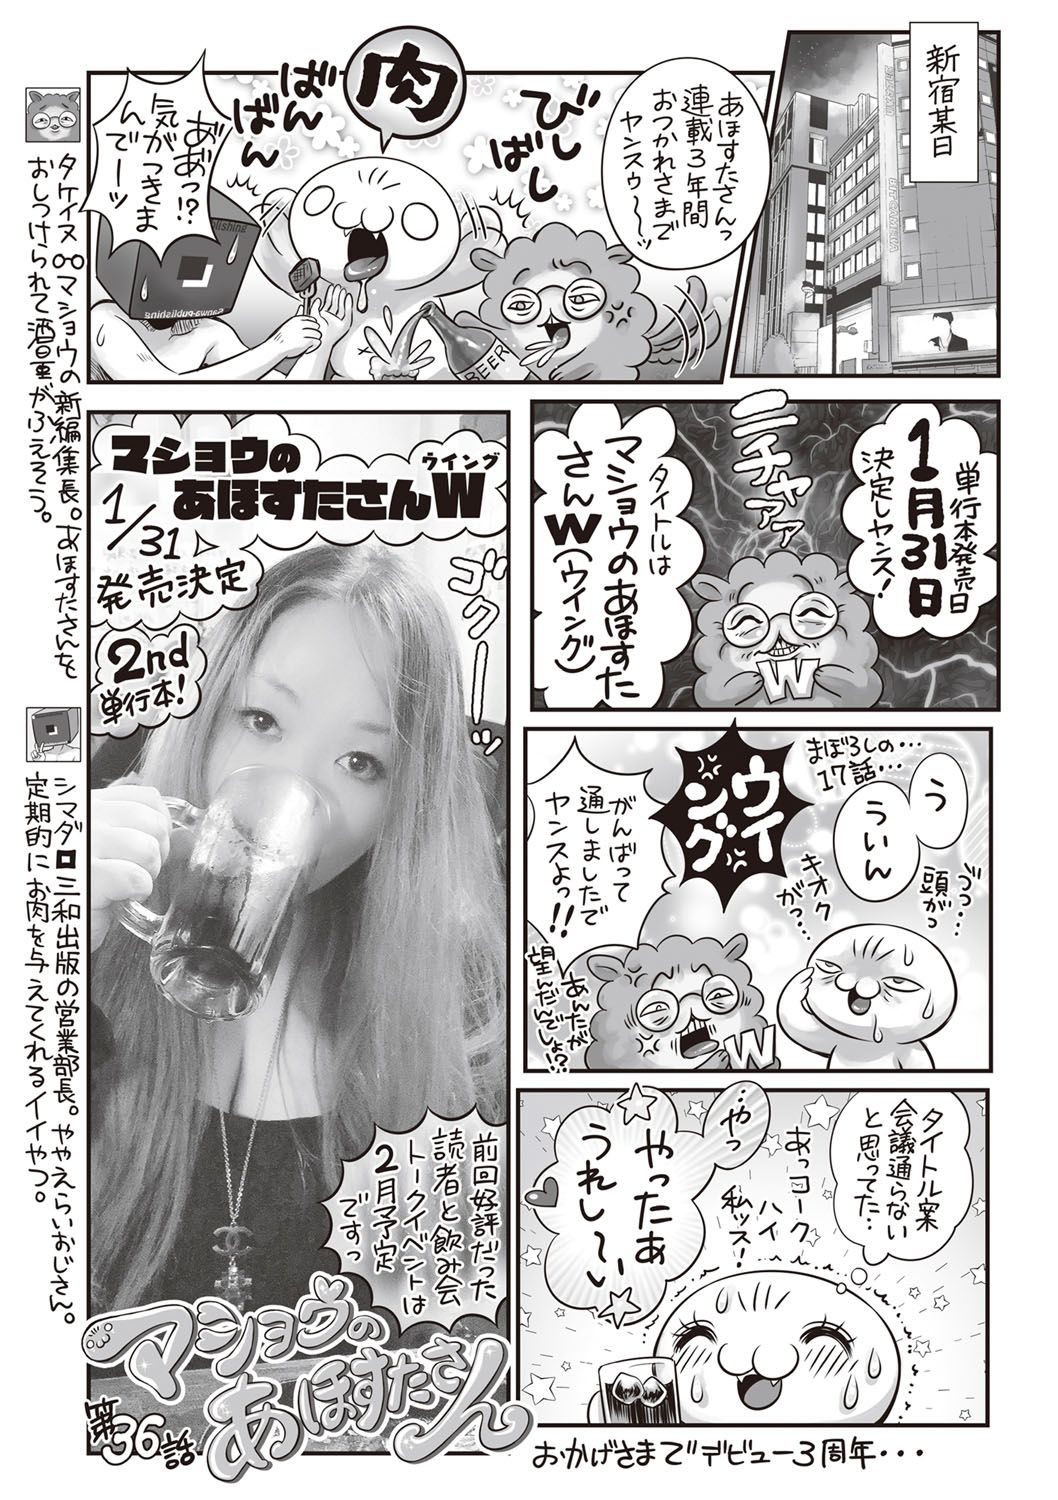 新宿某日
あほすたさんっ
連載3年間
おつかれさまで
ヤンスゥ〜〜ッ
びし
ばし
肉
ばん
ばん
あ゛あ゛っ!?
気がつきま
んでーッ
BEER
Sanwa-publishing
単行本発売日
1月31日
決定しヤンス!
ニチャアァァ
タイトルは
マショウのあほすた
さんW(ウイング)
W
まぼろしの…
17話…
う
ういん
づっ…
頭がっ
キオク
がっ…
ウイ
ング
がんばって
通しましたで
ヤンスよっ!!
あんたが
望んだでしょ!?
W
タイトル案
会議通らない
と思ってた…
あっコーク
ハイ
私ッス!
…やっ
やったぁ
うれし〜い
おかげさまでデビュー3周年・・・
マショウの
あほすたさんW
ウイング
1/31
発売決定
2nd
単行本!
ゴクーーッ
前回好評だった
読者と飲み会
トークイベントは
2月予定
ですっ
マショウの
あほすたさん
第36話
タケイヌ マショウの新編集長。あほすたさんを
おしつけられて酒量がふえそう。
シマダ 三和出版の営業部長。ややえらいおじさん。
定期的にお肉を与えてくれるイイやつ。